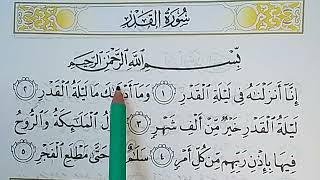 سُورَةُ القَدْرِ
بِسْمِ اللَّهِ الرَّحْمَنِ الرَّحِيمِ
إِنَّا أَنزَلْنَاهُ فِي لَيْلَةِ الْقَدْرِ ١ وَمَا مَا لَيْلَةُ الْقَدْرِ ٢
لَيْلَةُ الْقَدْرِ خَيْرٌ مِّنْ أَلْفِ شَهْرٍ ٣ الْمَلَائِكَةُ وَالرُّوحُ
فِيهَا بِإِذْنِ رَبِّهِم مِّن كُلِّ أَمْرٍ ٤ حَتَّىٰ مَطْلَعِ الْفَجْرِ ٥